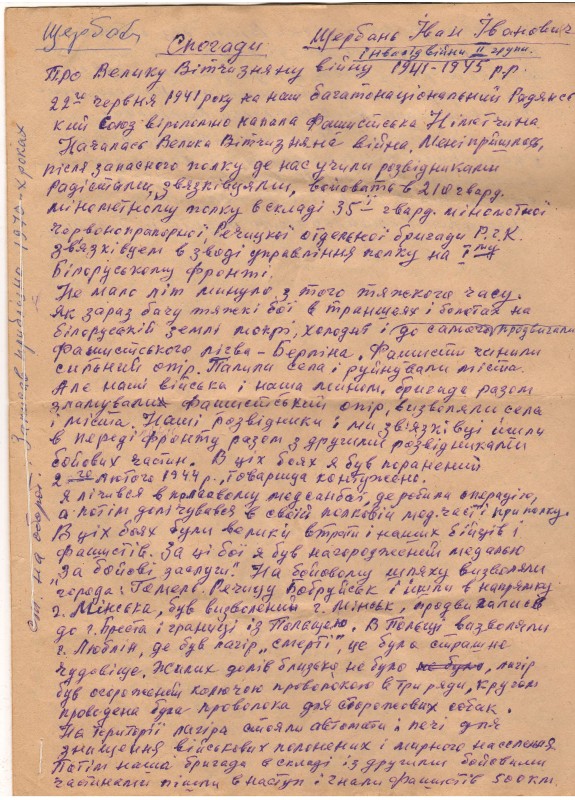 Щербань
Спогади Щербань Іван Іванович
Інвалід війни ІІ групи.
Про Велику Вітчизняну війну 1941-1945 р.р.
22го червня 1941 року на наш багатонаціональний Радянсь
кий Союз віроломно напала Фашистська Німеччина
Началась Велика Вітчизняна війна. Мені пришлось,
після запасного полку де нас учили розвідниками
радістами, звязківцями, воювать в 210 гвард.
мінометному полку в складі 35ї гвард. мінометної
червонопрапорної, Речицкої отдельної бригади Р.Г.К.
звязківцем в зводі управління полку на Іму
Білоруському Фронті.
Не мало літ минуло з того тяжкого часу.
Як зараз бачу тяжкі бої в траншеях і болотах на
білоруській землі мокрі, холодні і до самого продвигались
фашистського лігва - Берліна. Фашисти чинили
сильний опір. Палили села і руйнували міста.
Але наші війська і наша міном. бригада разом
зламували фашистський опір, визволяли села
і міста. Наші розвідники і ми звязківці ішли
в переді фронту разом з другими розвідниками
бойових частин. В ціх боях я був поранений
2го лютого 1944 р., товариша контужено.
Я лічився в медсанбаті, де робили операцію,
а потім долічувався в своїй полковій мед. часті при полку.
В ціх боях були великі втрати і наших бійців і
фашистів. За ці бої я був нагороджений медалею
"За бойові заслуги". На бойовому шляху визволяли
города: Гомель. Речицу Бобруйськ і ішли в напрямку
г. Мінська, був визволений г. Мінськ, продвигались
до г. Бреста і границі із Польщею. В Польщі визволяли
г. Люблін, де був лагір "смерті", це було страшне
чудовіще. Жилих домів близько не було не було, лагір
був огорожений колючою проволокою в три ряди, кругом
проведена була проволока для сторожових собак.
На території лагіра стояли автомати і печі для
знищення військових полонених і мирного населення
Потім наша бригада в складі із другими бойовими
частинами пішли в наступ і гнали фашистів 500 км.
См. на обороті. Записав приблизно в 1970-х роках